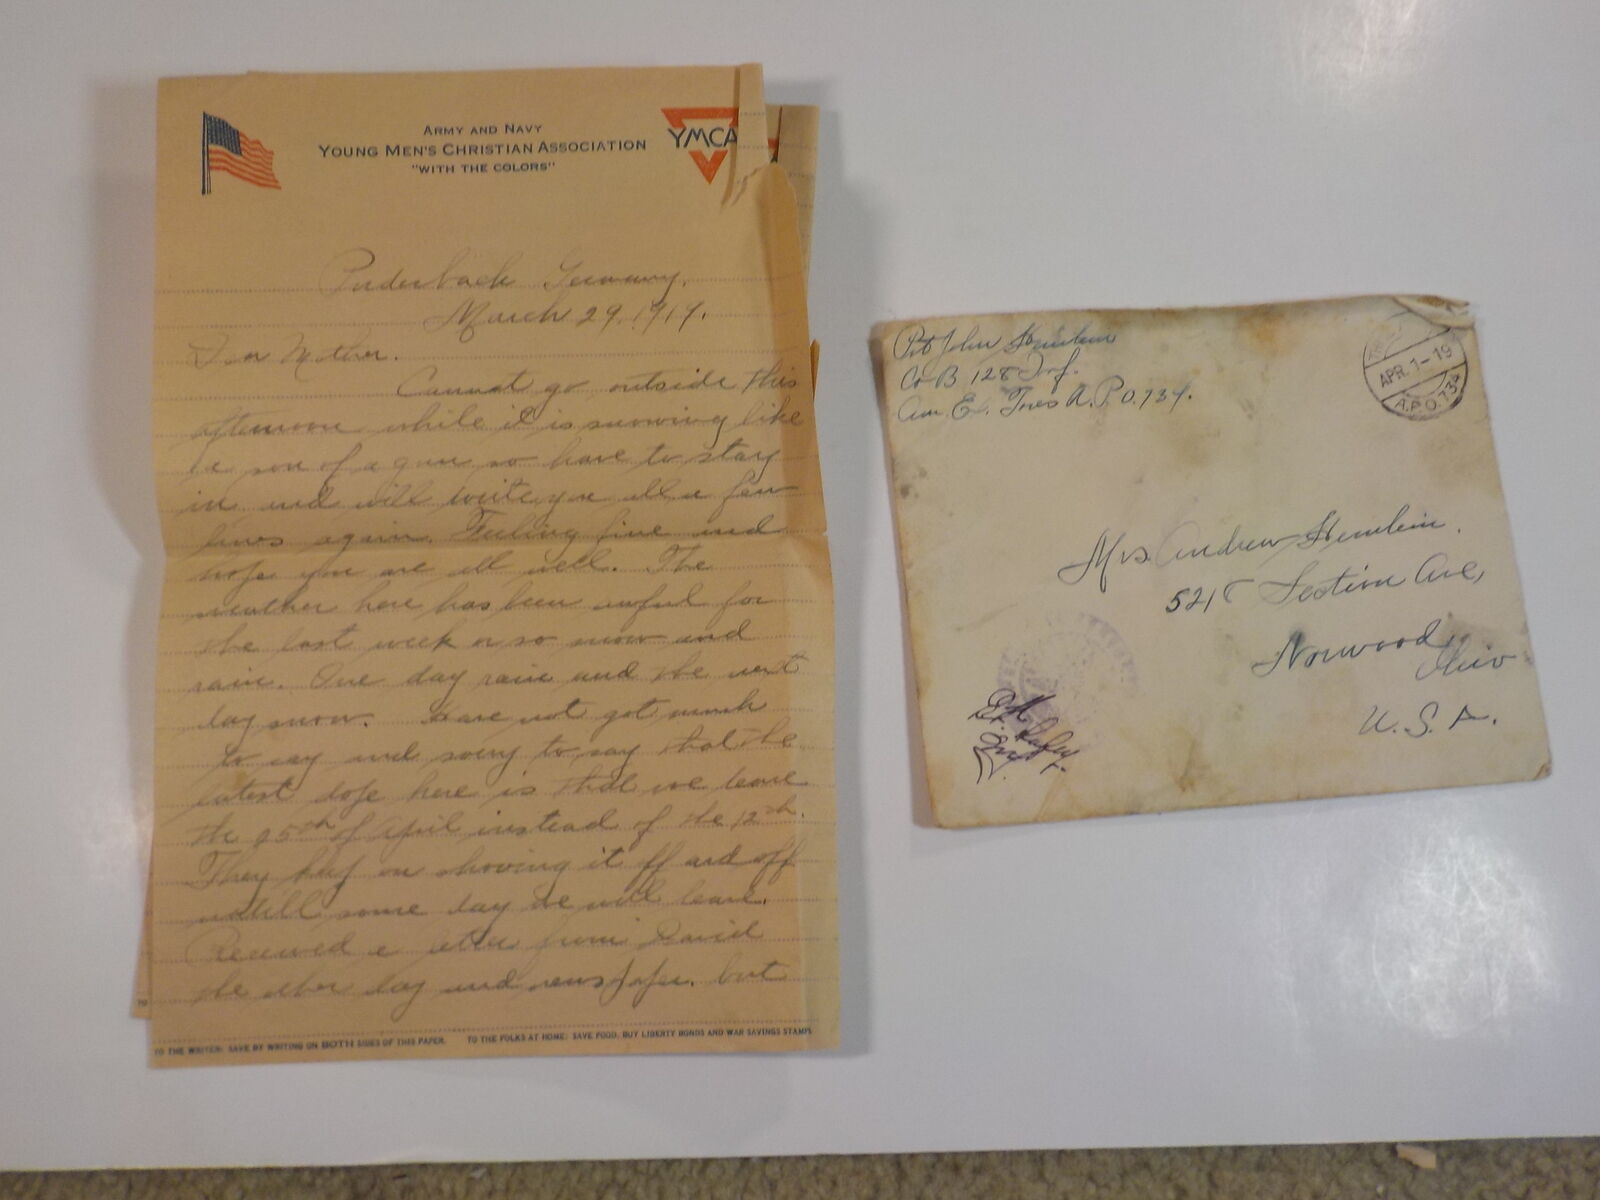 ARMY AND NAVY
YOUNG MEN'S CHRISTIAN ASSOCIATION
"WITH THE COLORS"
YMCA
Puderbach Germany.
March 29, 1919.
Dear Mother.
Cannot go outside this
afternoon while it is snowing like
a son of a gun so have to stay
in and will write you all a few
lines again. Feeling fine and
hope you are all well. The
weather here has been awful for
the last week or so snow and
rain. One day rain and the next
day snow. Have not got much
to say and sorry to say that the
latest dope here is that we leave
the 25th of April instead of the 12th.
They keep on shoving it off and off
untill some day we will leave.
Received a letter from David
the other day and newspaper. but
TO THE WRITER: SAVE BY WRITING ON BOTH SIDES OF THIS PAPER. TO THE FOLKS AT HOME: SAVE FOOD, BUY LIBERTY BONDS AND WAR SAVINGS STAMPS
Pvt John Hemlein
Co B 128 Inf.
Am. Ex. Forces A.P.O. 734.
APR. 1-19
A.P.O. 734
Mrs Andrew Hemlein.
5218 Section Ave,
Norwood,
Ohio
U. S. A.